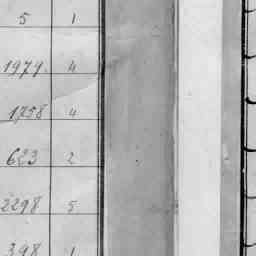 5 1
1979. 4
1758 4
623 2
2298 5
398 1